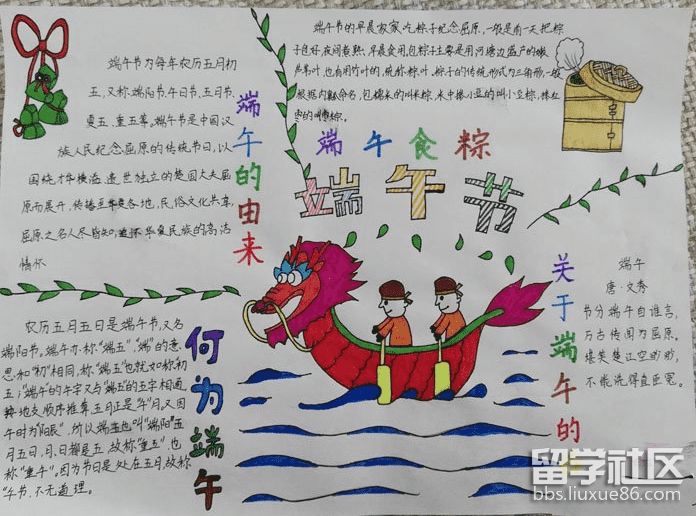 端午节为每年农历五月初
五,又称端阳节、午日节、五月节、
夏五、重五等。端午节是中国汉
族人民纪念屈原的传统节日,以
围绕才华横溢、遗世独立的楚国大夫屈
原而展开,传播至各地,民俗文化共享,
屈原之名人尽皆知,追怀华夏民族的高洁
情怀
端午的由来
端午节的早晨家家吃粽子纪念屈原,一般是前一天把粽
子包好,夜间煮熟,早晨食用。包粽子主要是用河塘边盛产的嫩
芦苇叶,也有用竹叶的,统称粽叶。粽子的传统形式为三角形,一般
根据内瓤命名,包糯米的叫米粽,米中掺小豆的叫小豆粽,掺红
枣的叫枣粽。
端午食粽
端午节
农历五月五日是端午节,又名
端阳节。端午亦称“端五”,“端”的意
思和“初”相同,称“端五”也就如称“初
五”;端午的午字又与“端五”的五字相通,
按地支顺序推算,五月正是“午”月。又因
午时为“阳辰”,所以端五也叫“端阳”。五
月五日,月、日都是五,故称“重五”,也
称“重午”。因为节日是处在五月,故称
“午节”,不无道理。
何为端午
关于端午的
端午
唐·文秀
节分端午自谁言,
万古传闻为屈原。
堪笑楚江空渺渺,
不能洗得直臣冤。
留学社区
bbs.liuxue86.com